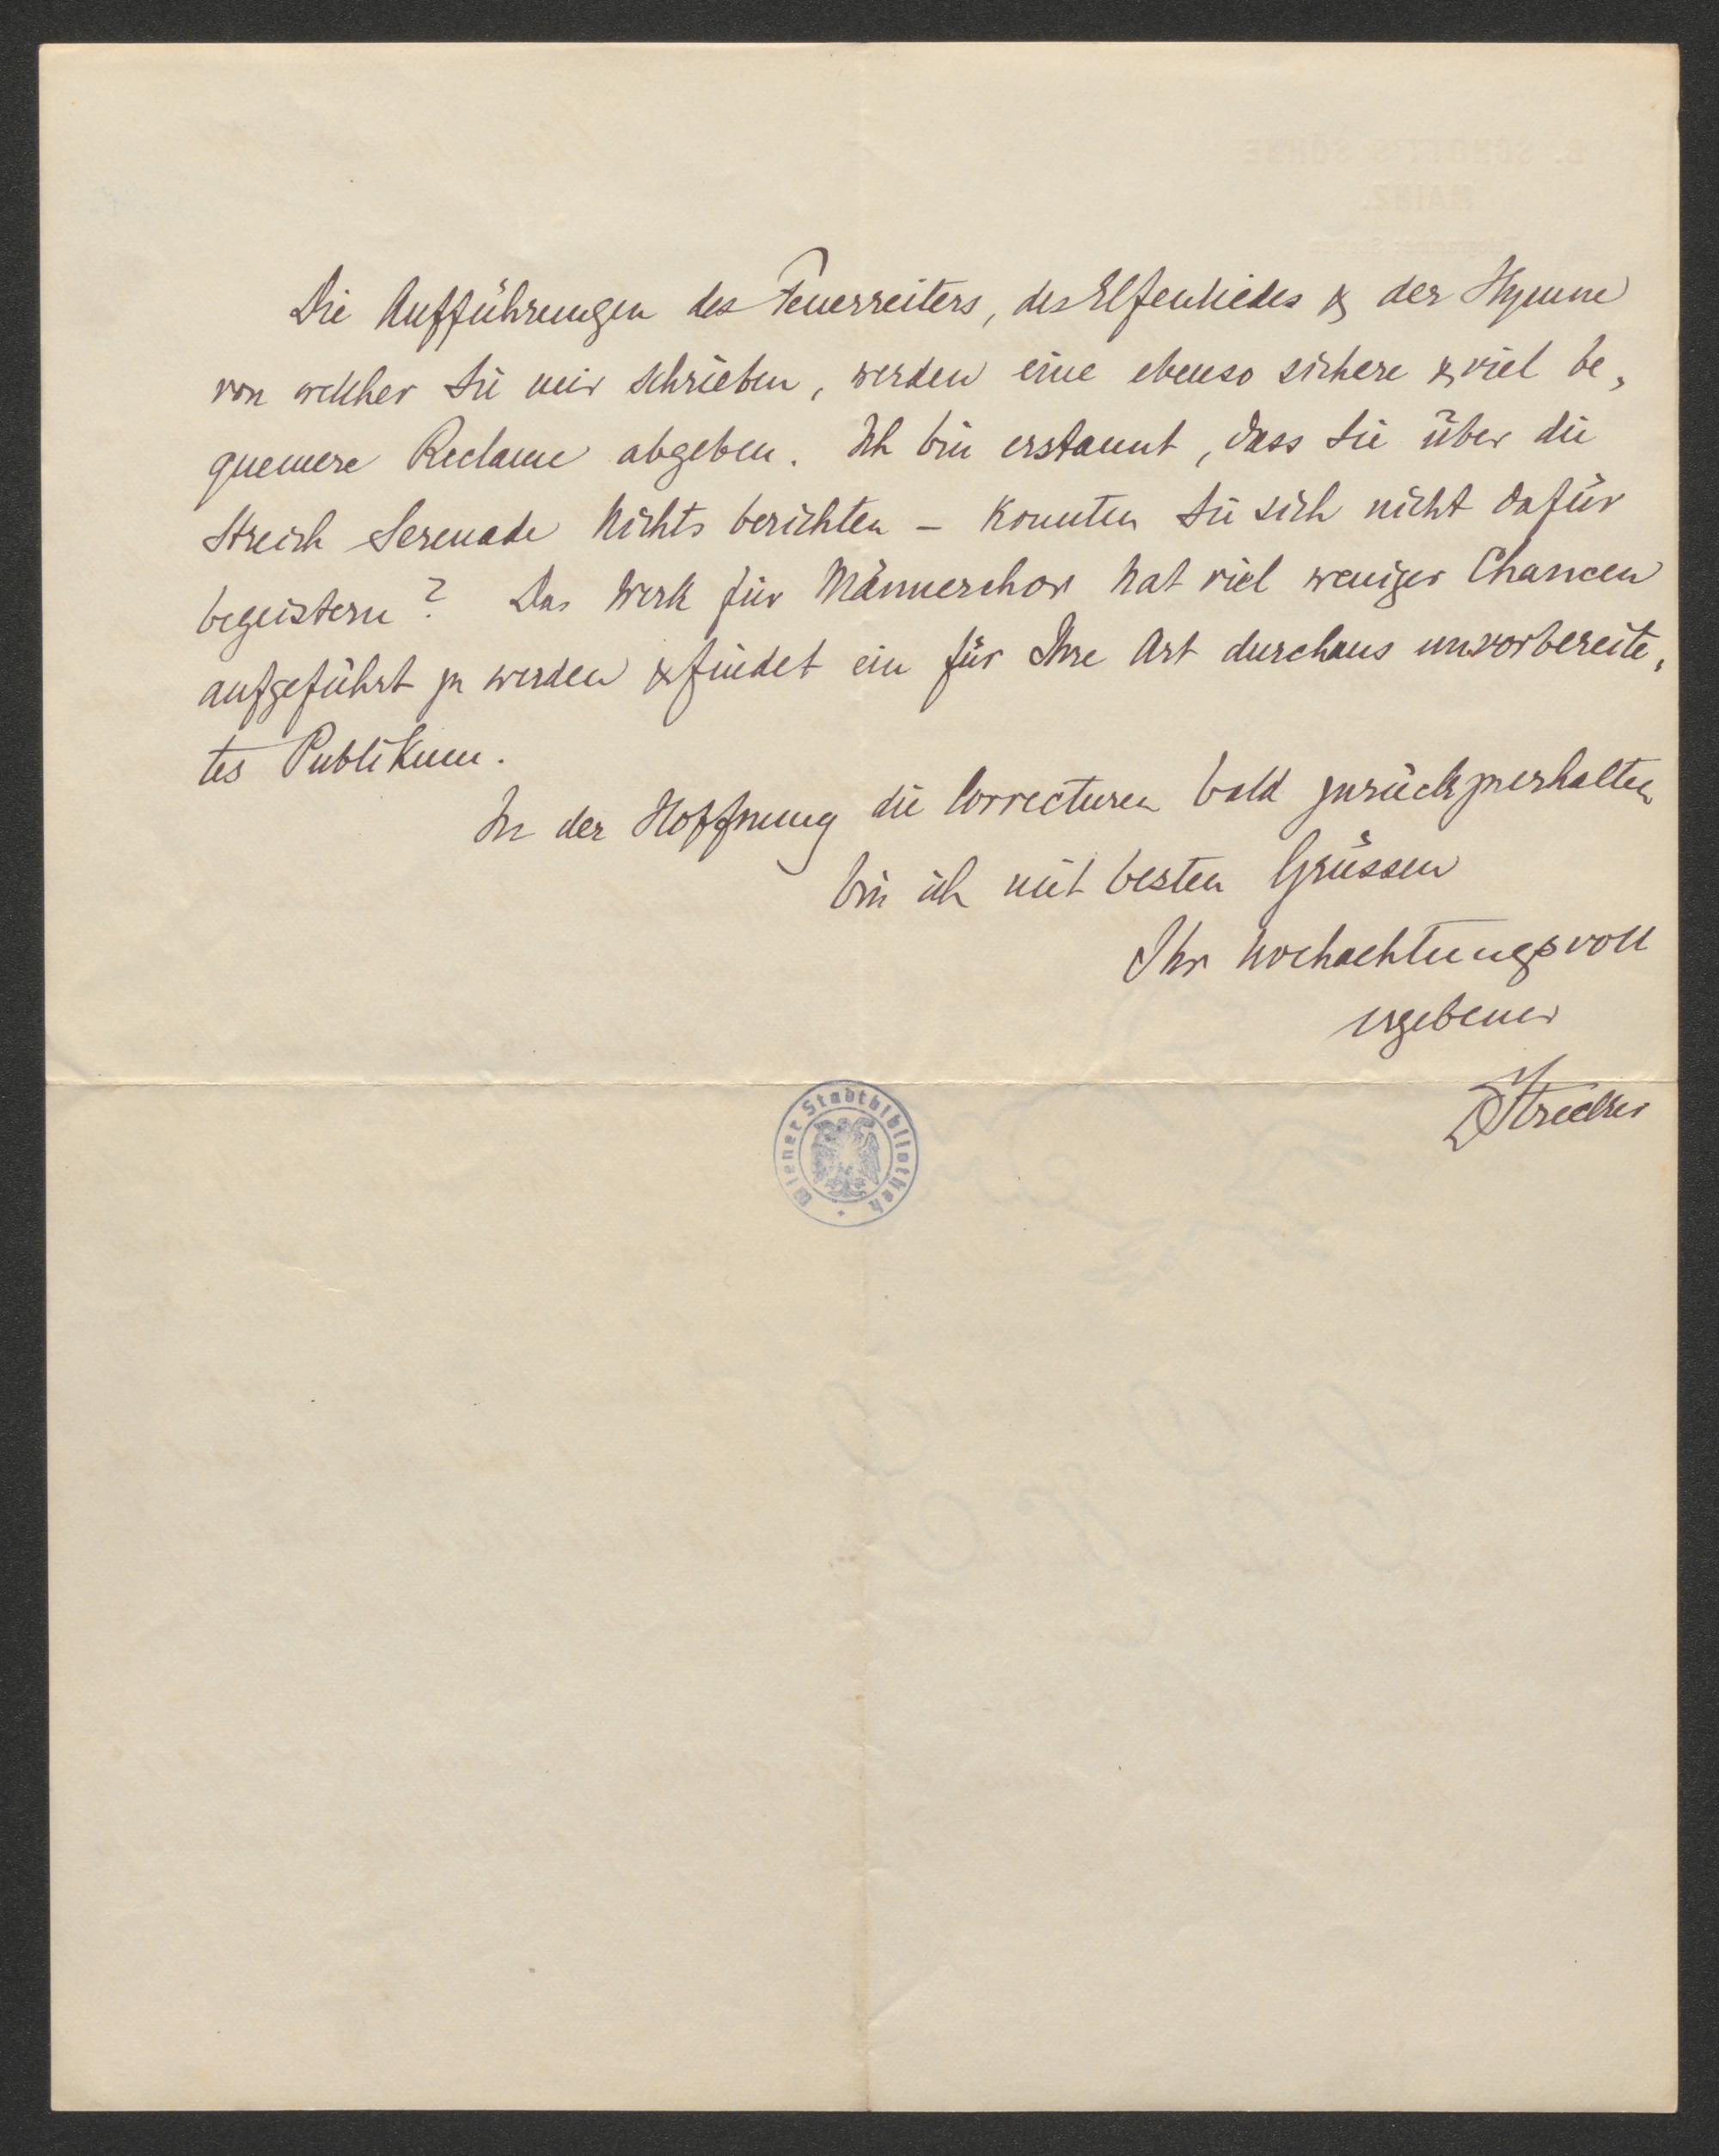 Die Aufführungen des Feuerreiters, des Elfenliedes & der Hymne
von welcher Sie mir schrieben, werden eine ebenso sichere & viel be„
quemere Reclame abgeben. Ich bin erstaunt, dass Sie über die
Streich Serenade Nichts berichten – konnten Sie sich nicht dafür
begeistern? Das Werk für Männerchor hat viel weniger Chancen
aufgeführt zu werden & findet ein für Ihre Art durchaus unvorbereite„
tes Publikum.
In der Hoffnung die Correcturen bald zurückzuerhalten
bin ich mit besten Grüssen
Ihr hochachtungsvoll
ergebener
LStrecker
Wiener Stadtbibliothek
B. SCHOTT'S SÖHNE
MAINZ.